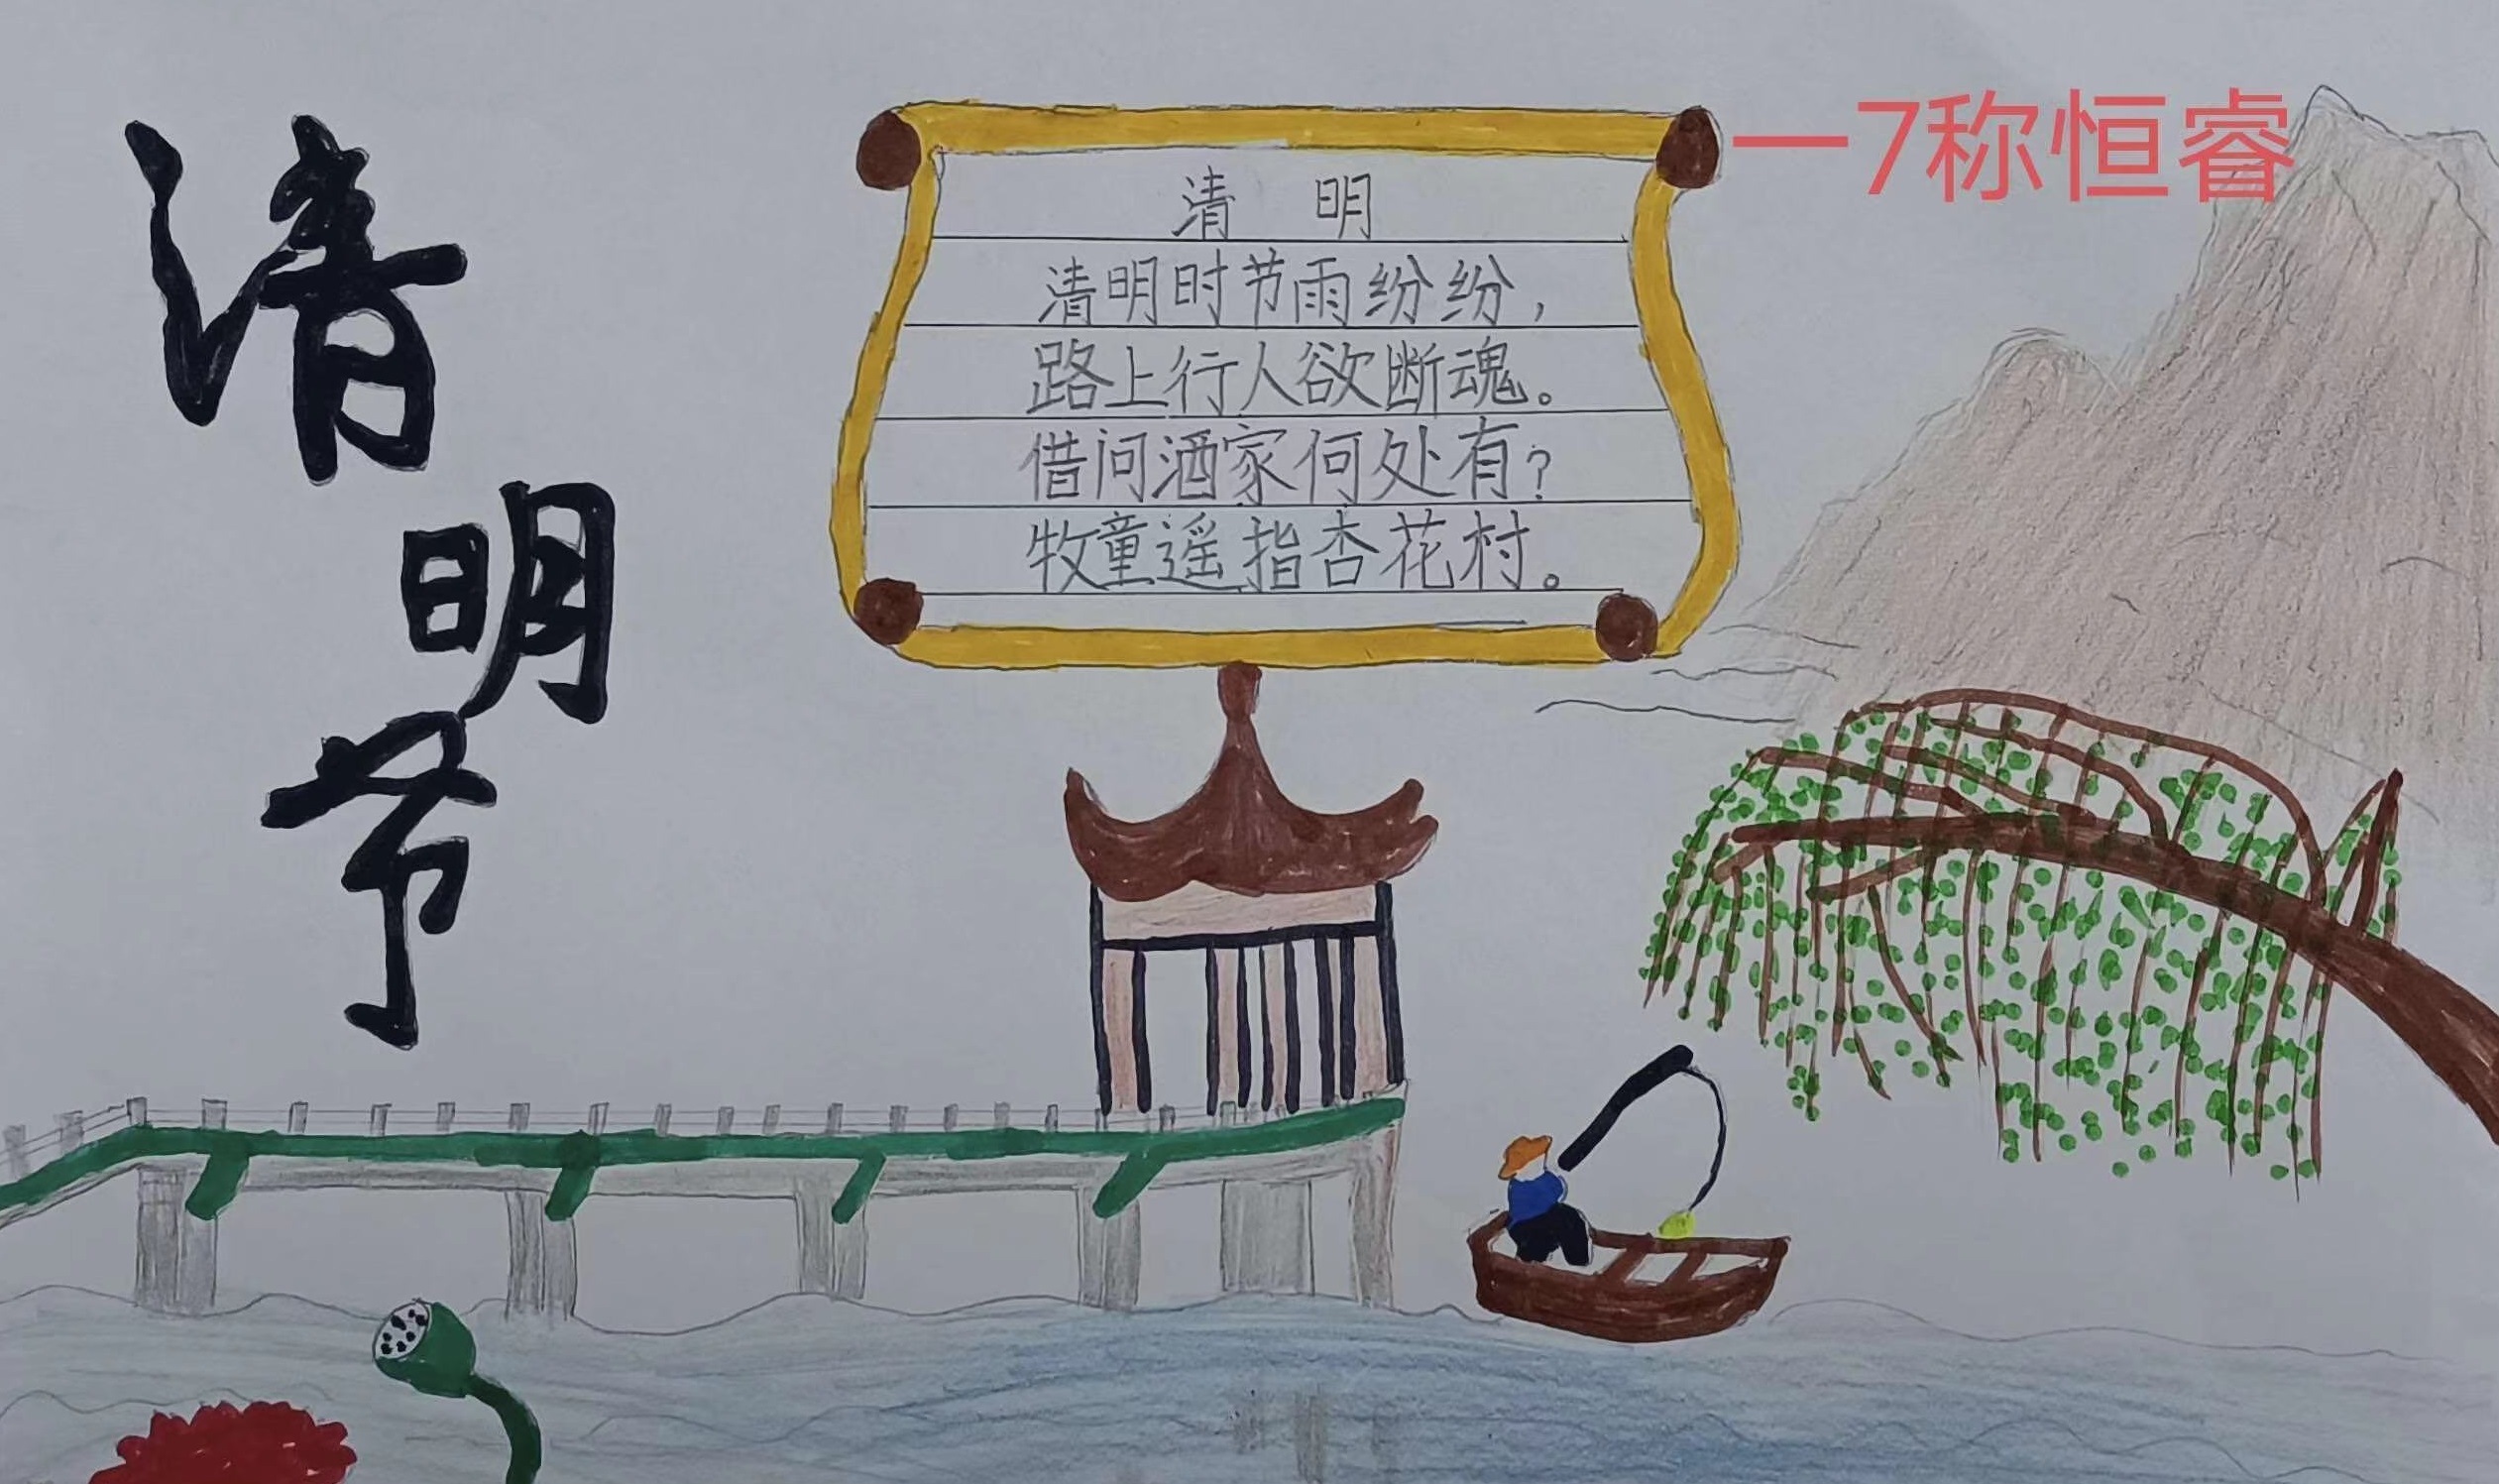 清明节
清 明
清明时节雨纷纷，
路上行人欲断魂。
借问酒家何处有？
牧童遥指杏花村。
一7称恒睿